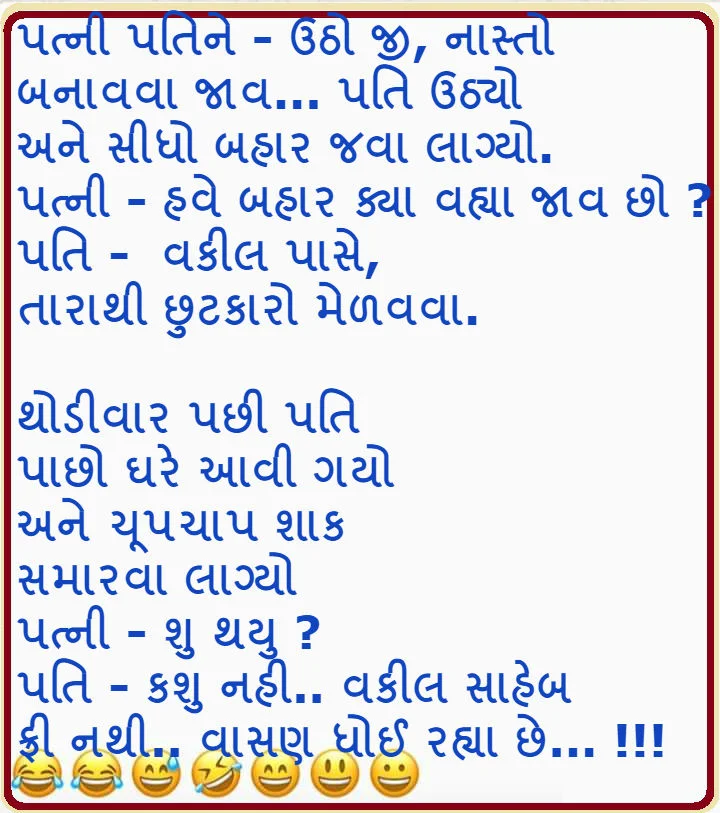 પત્ની પતિને - ઉઠો જી, નાસ્તો
બનાવવા જાવ... પતિ ઉઠ્યો
અને સીધો બહાર જવા લાગ્યો.
પત્ની - હવે બહાર ક્યા વહ્યા જાવ છો ?
પતિ - વકીલ પાસે,
તારાથી છુટકારો મેળવવા.
થોડીવાર પછી પતિ
પાછો ઘરે આવી ગયો
અને ચૂપચાપ શાક
સમારવા લાગ્યો
પત્ની - શુ થયુ ?
પતિ - કશુ નહી.. વકીલ સાહેબ
ફ્રી નથી.. વાસણ ધોઈ રહ્યા છે... !!!
😂😂😅🤣😄😃😀